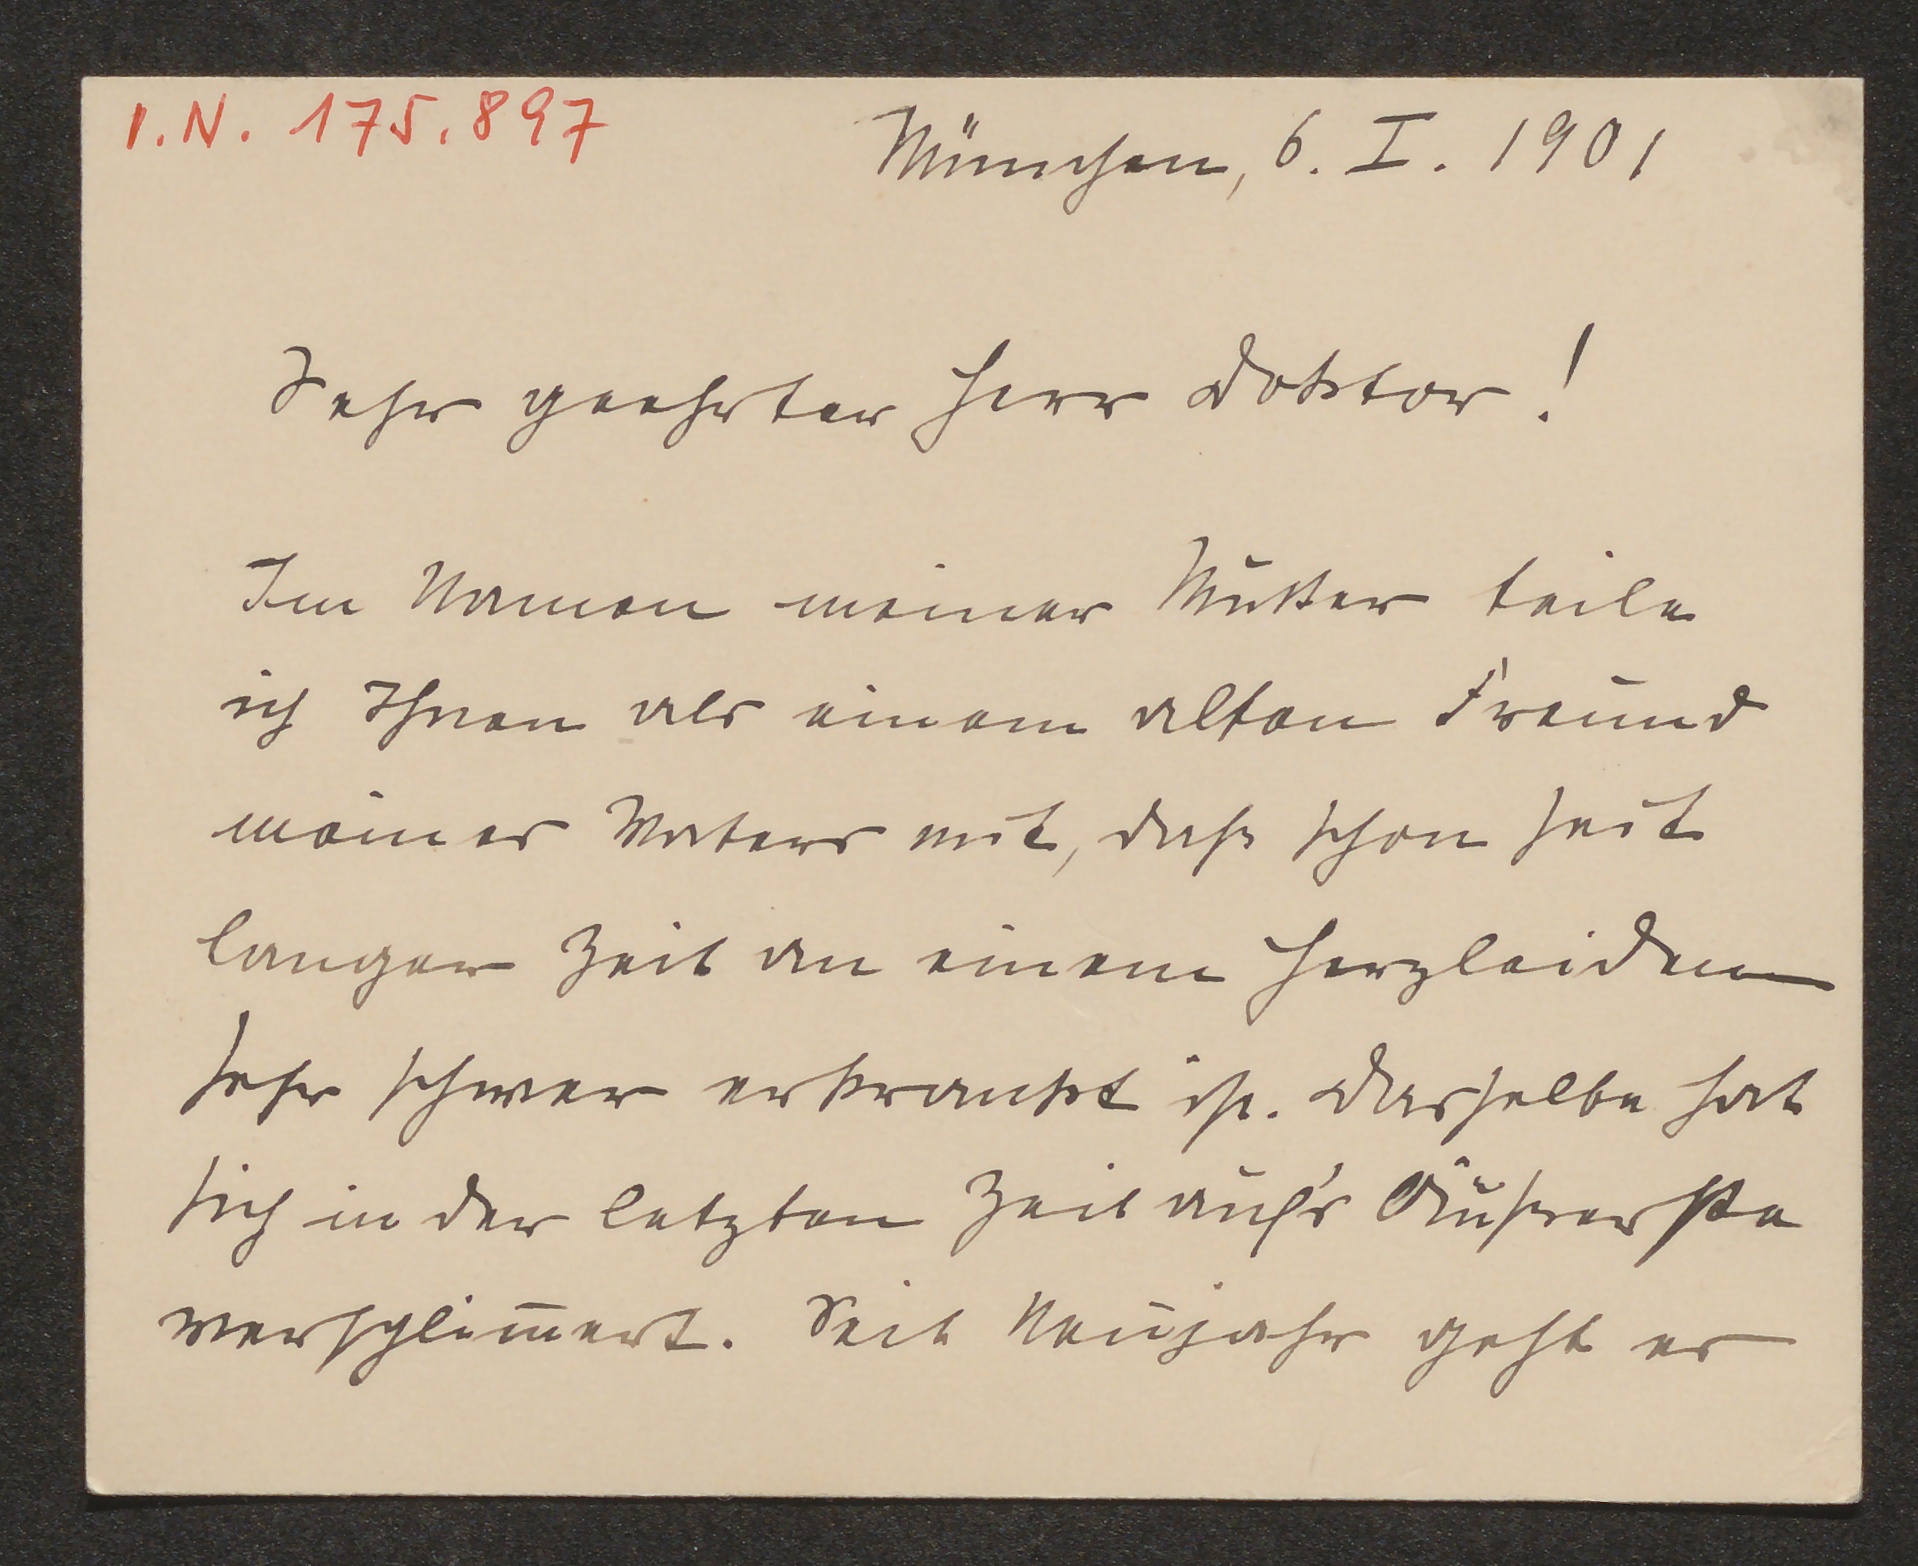 I.N. 175.897
München, 6. I. 1901
Sehr geehrter Herr Doktor!
Im Namen meiner Mutter teile
ich Ihnen als einem alten Freund
meines Vaters mit, daß schon seit
langer Zeit an einem Herzleiden
sehr schwer erkrankt ist. Dasselbe hat
sich in der letzten Zeit auf's Äußerste
verschlim̄ert. Seit Neujahr geht es